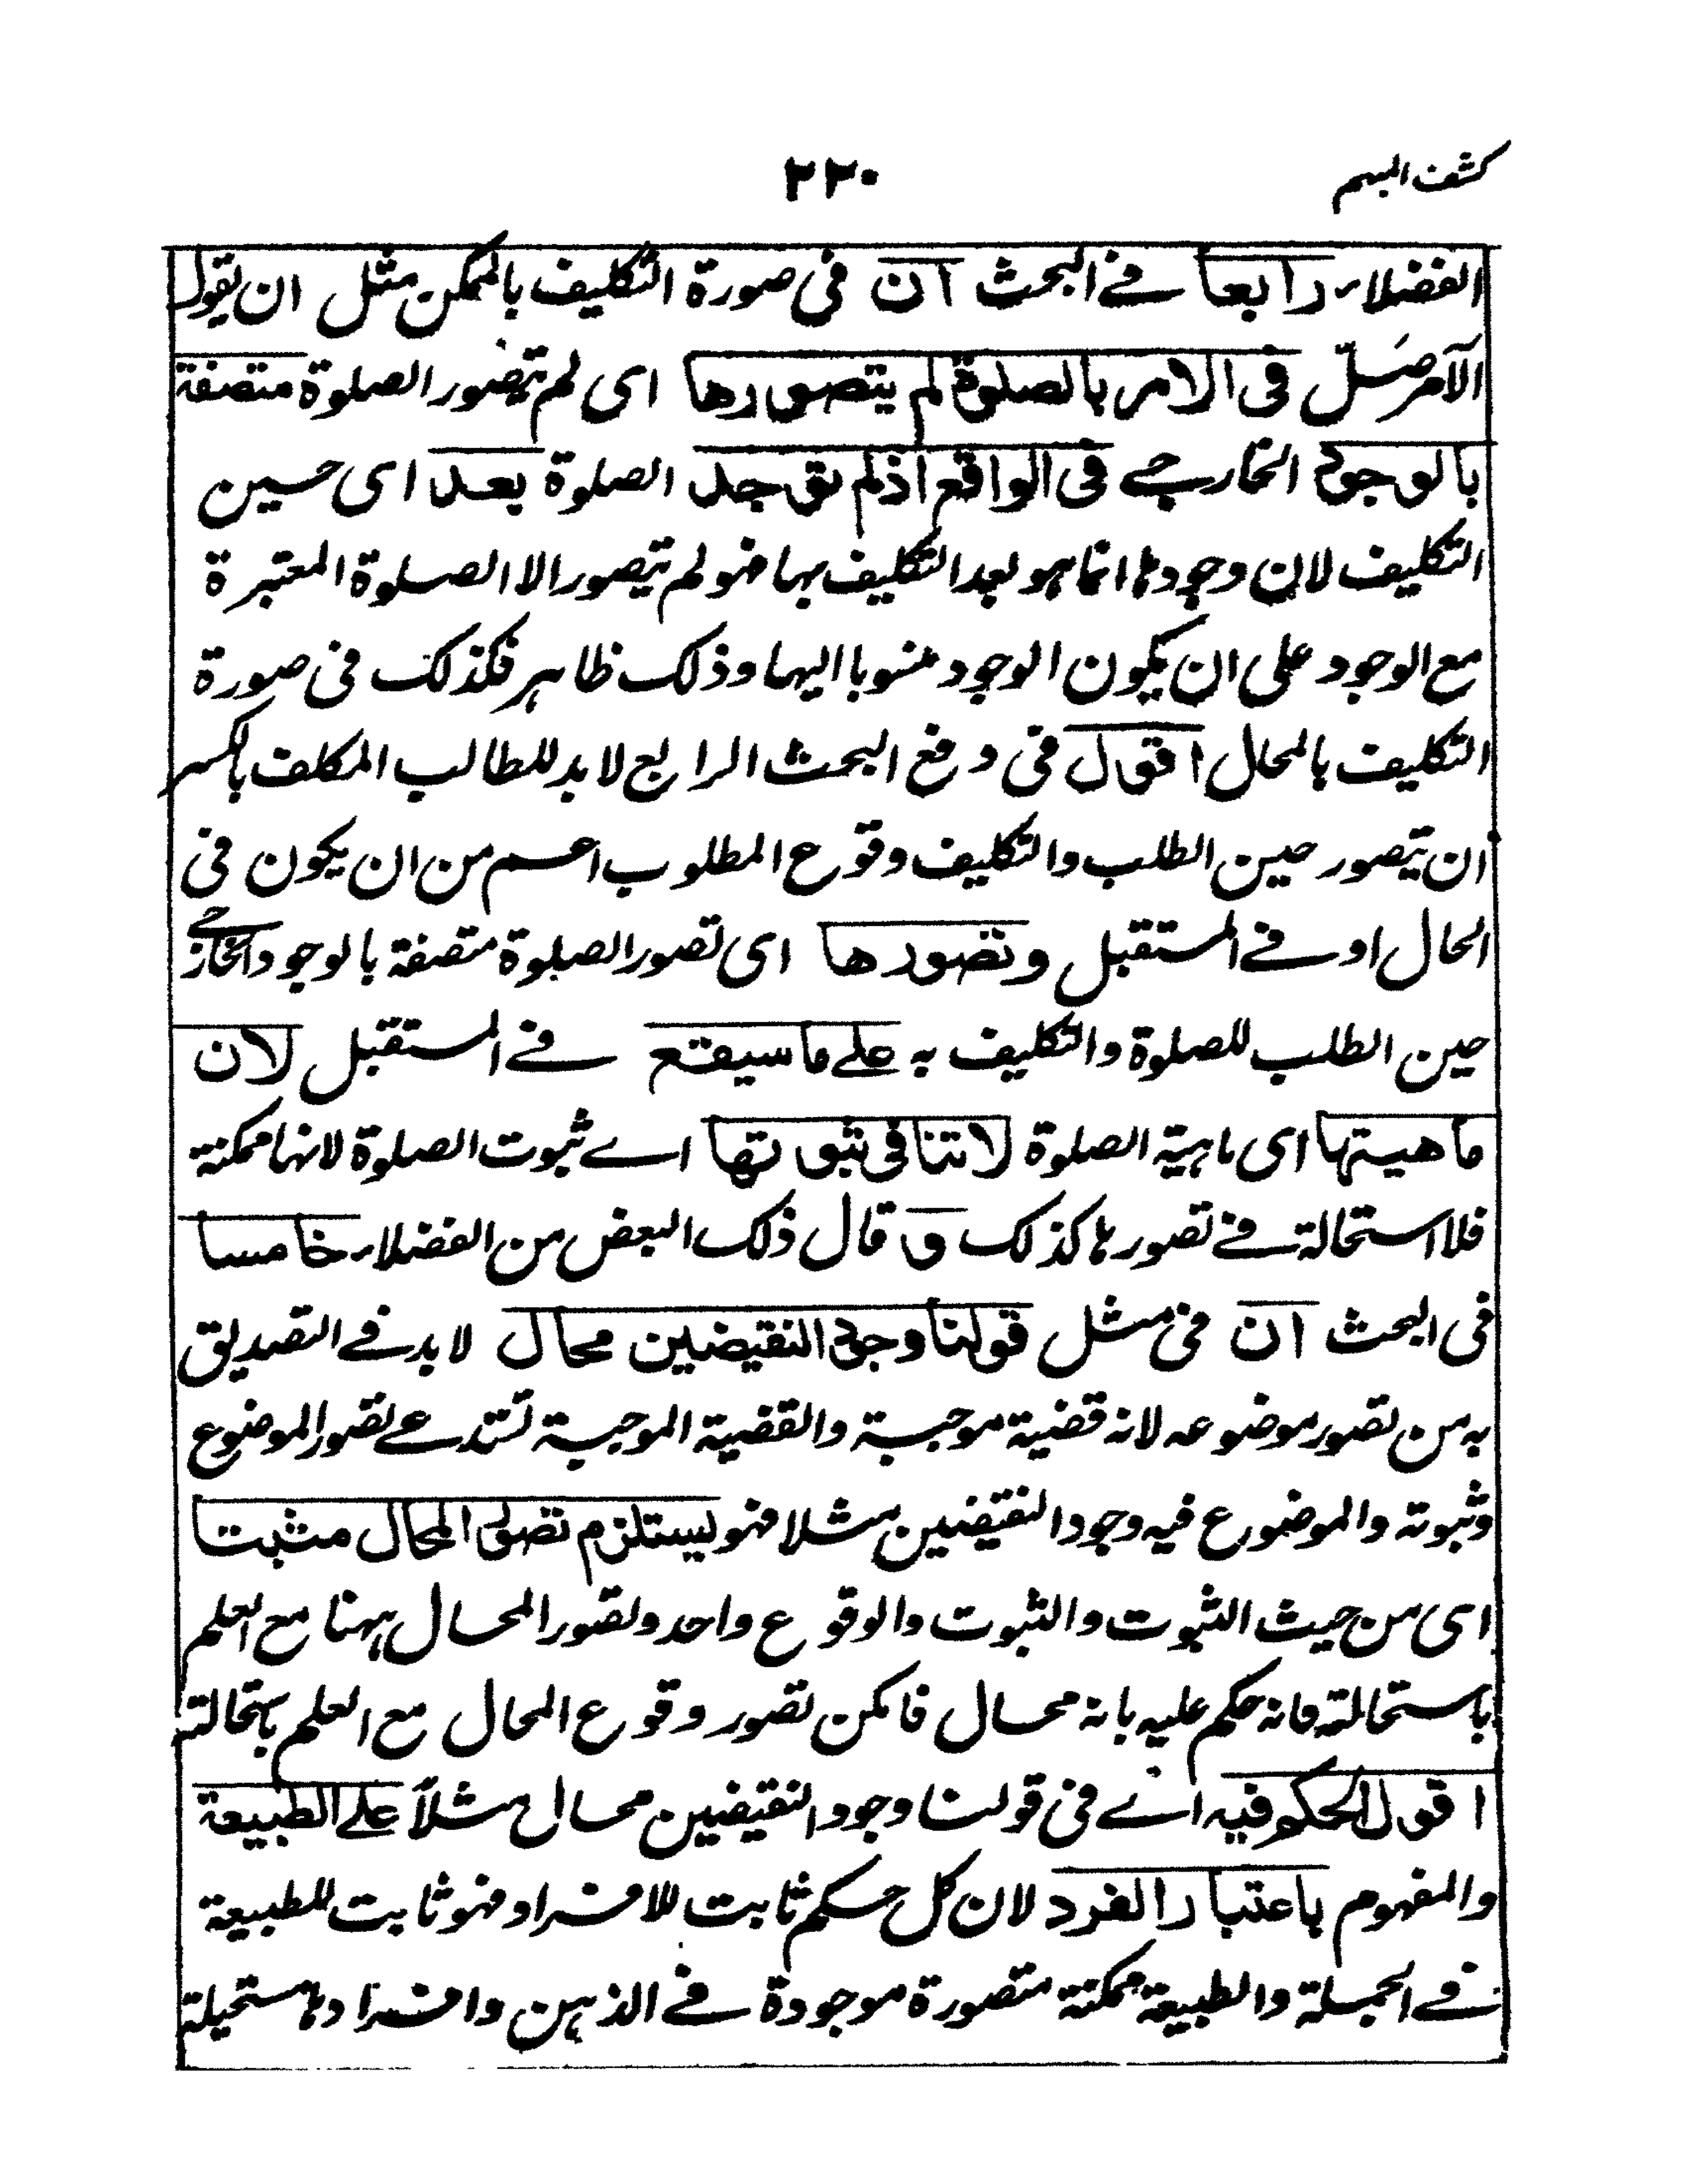 كشف المبهم ٢٢٠
الفضلاء رابعا في البحث ان في صورة التكليف بالممكن مثل ان يقول
الآمر صَلِّ في الامر بالصلوة لم يتصورها اى لم يتصور الصلوة متصفة
بالوجود الخارجي في الواقع اذ لم توجد الصلوة بعد اى حين
التكليف لان وجودها انما هو بعد التكليف بها فهو لم يتصور الا الصلوة المعتبرة
مع الوجود على ان يكون الوجود منسوبا اليها وذلك ظاهر فكذلك في صورة
التكليف بالمحال اقول في دفع البحث الرابع لا بد للطالب المكلف بالكسر
ان يتصور حين الطلب والتكليف وقوع المطلوب اعم من ان يكون في
الحال او في المستقبل وتصورها اى تصور الصلوة متصفة بالوجود الخارجي
حين الطلب للصلوة والتكليف به على ما سيقع في المستقبل لان
ماهيتها اى ماهية الصلوة لا تنافى ثبوتها اے ثبوت الصلوة لانها ممكنة
فلا استحالة في تصورها كذلك و قال ذلك البعض من الفضلاء خامسا
في البحث ان في مثل قولنا وجود النقيضين محال لا بد في التصديق
به من تصور موضوعه لانه قضية موجبة والقضية الموجبة تستدعے تصور الموضوع
وثبوته والموضوع فيه وجود النقيضين مثلا فهو يستلزم تصور المحال مثبتا
اى من حيث الثبوت والثبوت والوقوع واحد وتصور المحال ههنا مع العلم
باستحالته فانه حكم عليه بانه محال فامكن تصور وقوع المحال مع العلم باستحالته
اقول الحكم فيه اے في قولنا وجود النقيضين محال مثلاً على الطبيعة
والمفهوم باعتبار الفرد لان كل حكم ثابت للافراد فهو ثابت للطبيعة
في الجملة والطبيعة ممكنة متصورة موجودة في الذهن وافرادها مستحيلة